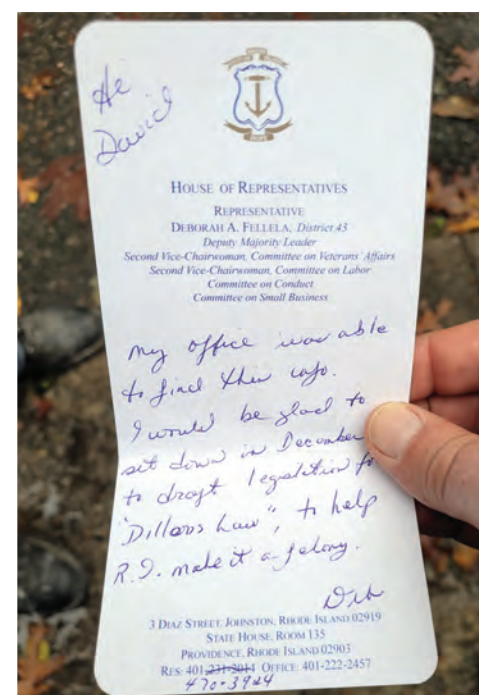 Hi
David
HOPE
HOUSE OF REPRESENTATIVES
REPRESENTATIVE
DEBORAH A. FELLELA, District 43
Deputy Majority Leader
Second Vice-Chairwoman, Committee on Veterans' Affairs
Second Vice-Chairwoman, Committee on Labor
Committee on Conduct
Committee on Small Business
My office was able
to find this info.
I would be glad to
sit down in December
to draft legislation fo
"Dillons Law", to help
R.I. make it a felony.
Deb
3 DIAZ STREET, JOHNSTON, RHODE ISLAND 02919
STATE HOUSE, ROOM 135
PROVIDENCE, RHODE ISLAND 02903
RES: 401-231-2014 OFFICE: 401-222-2457
470-3924